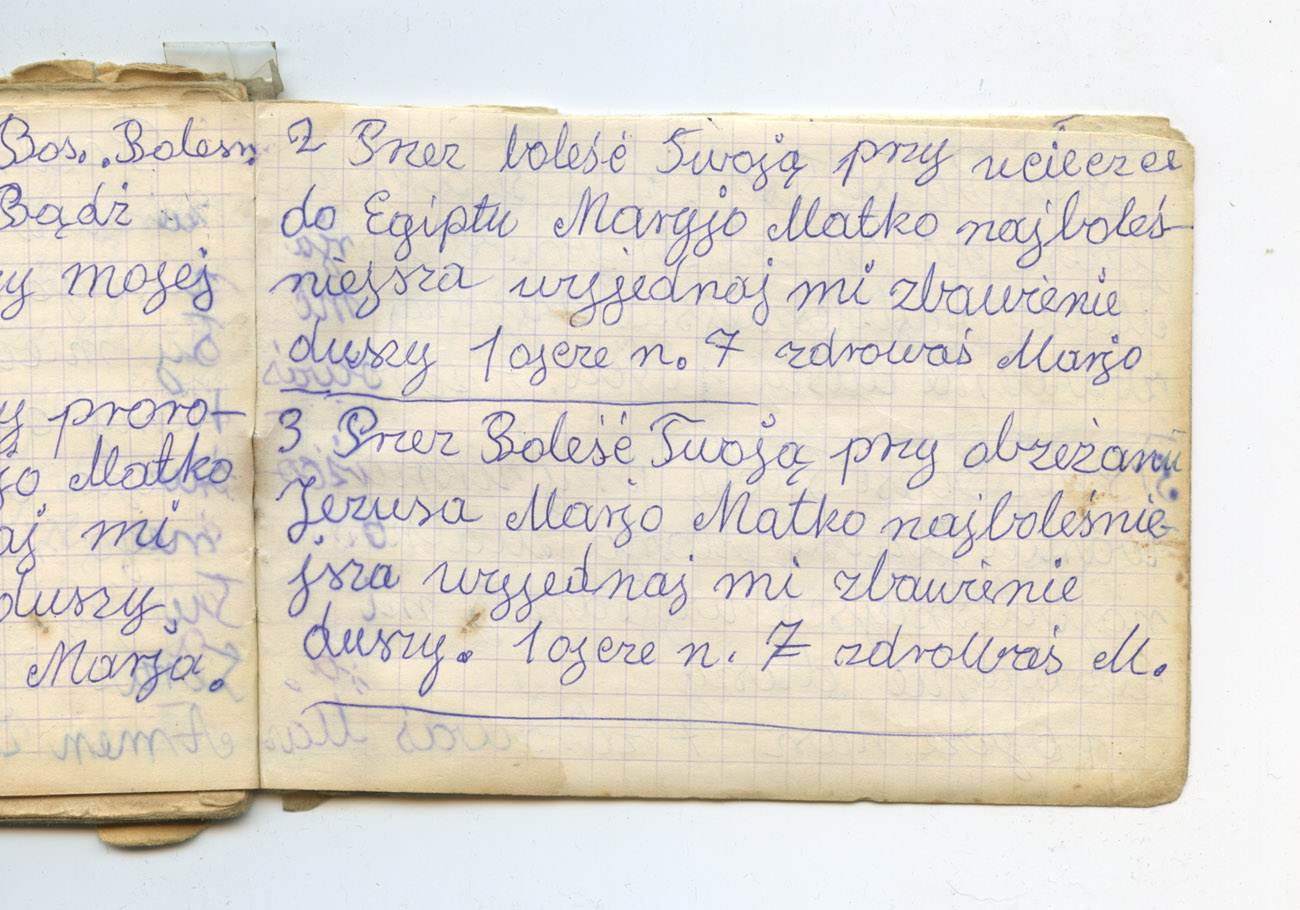 Bos. Bolesn.
Bądź
y mojej
y proro-
jo Matko
aj mi
duszy
Marja.
2 Przez boleść Twoją przy ucieczce
do Egiptu Maryjo Matko najboleś-
niejsza wyjednaj mi zbawienie
duszy 1 ojcze n. 7 zdrowaś Marjo
3 Przez Boleść Twoją przy obrzeżaniu
Jezusa Marjo Matko najboleśnie-
jsza wyjednaj mi zbawienie
duszy. 1 ojcze n. 7 zdrowaś M.